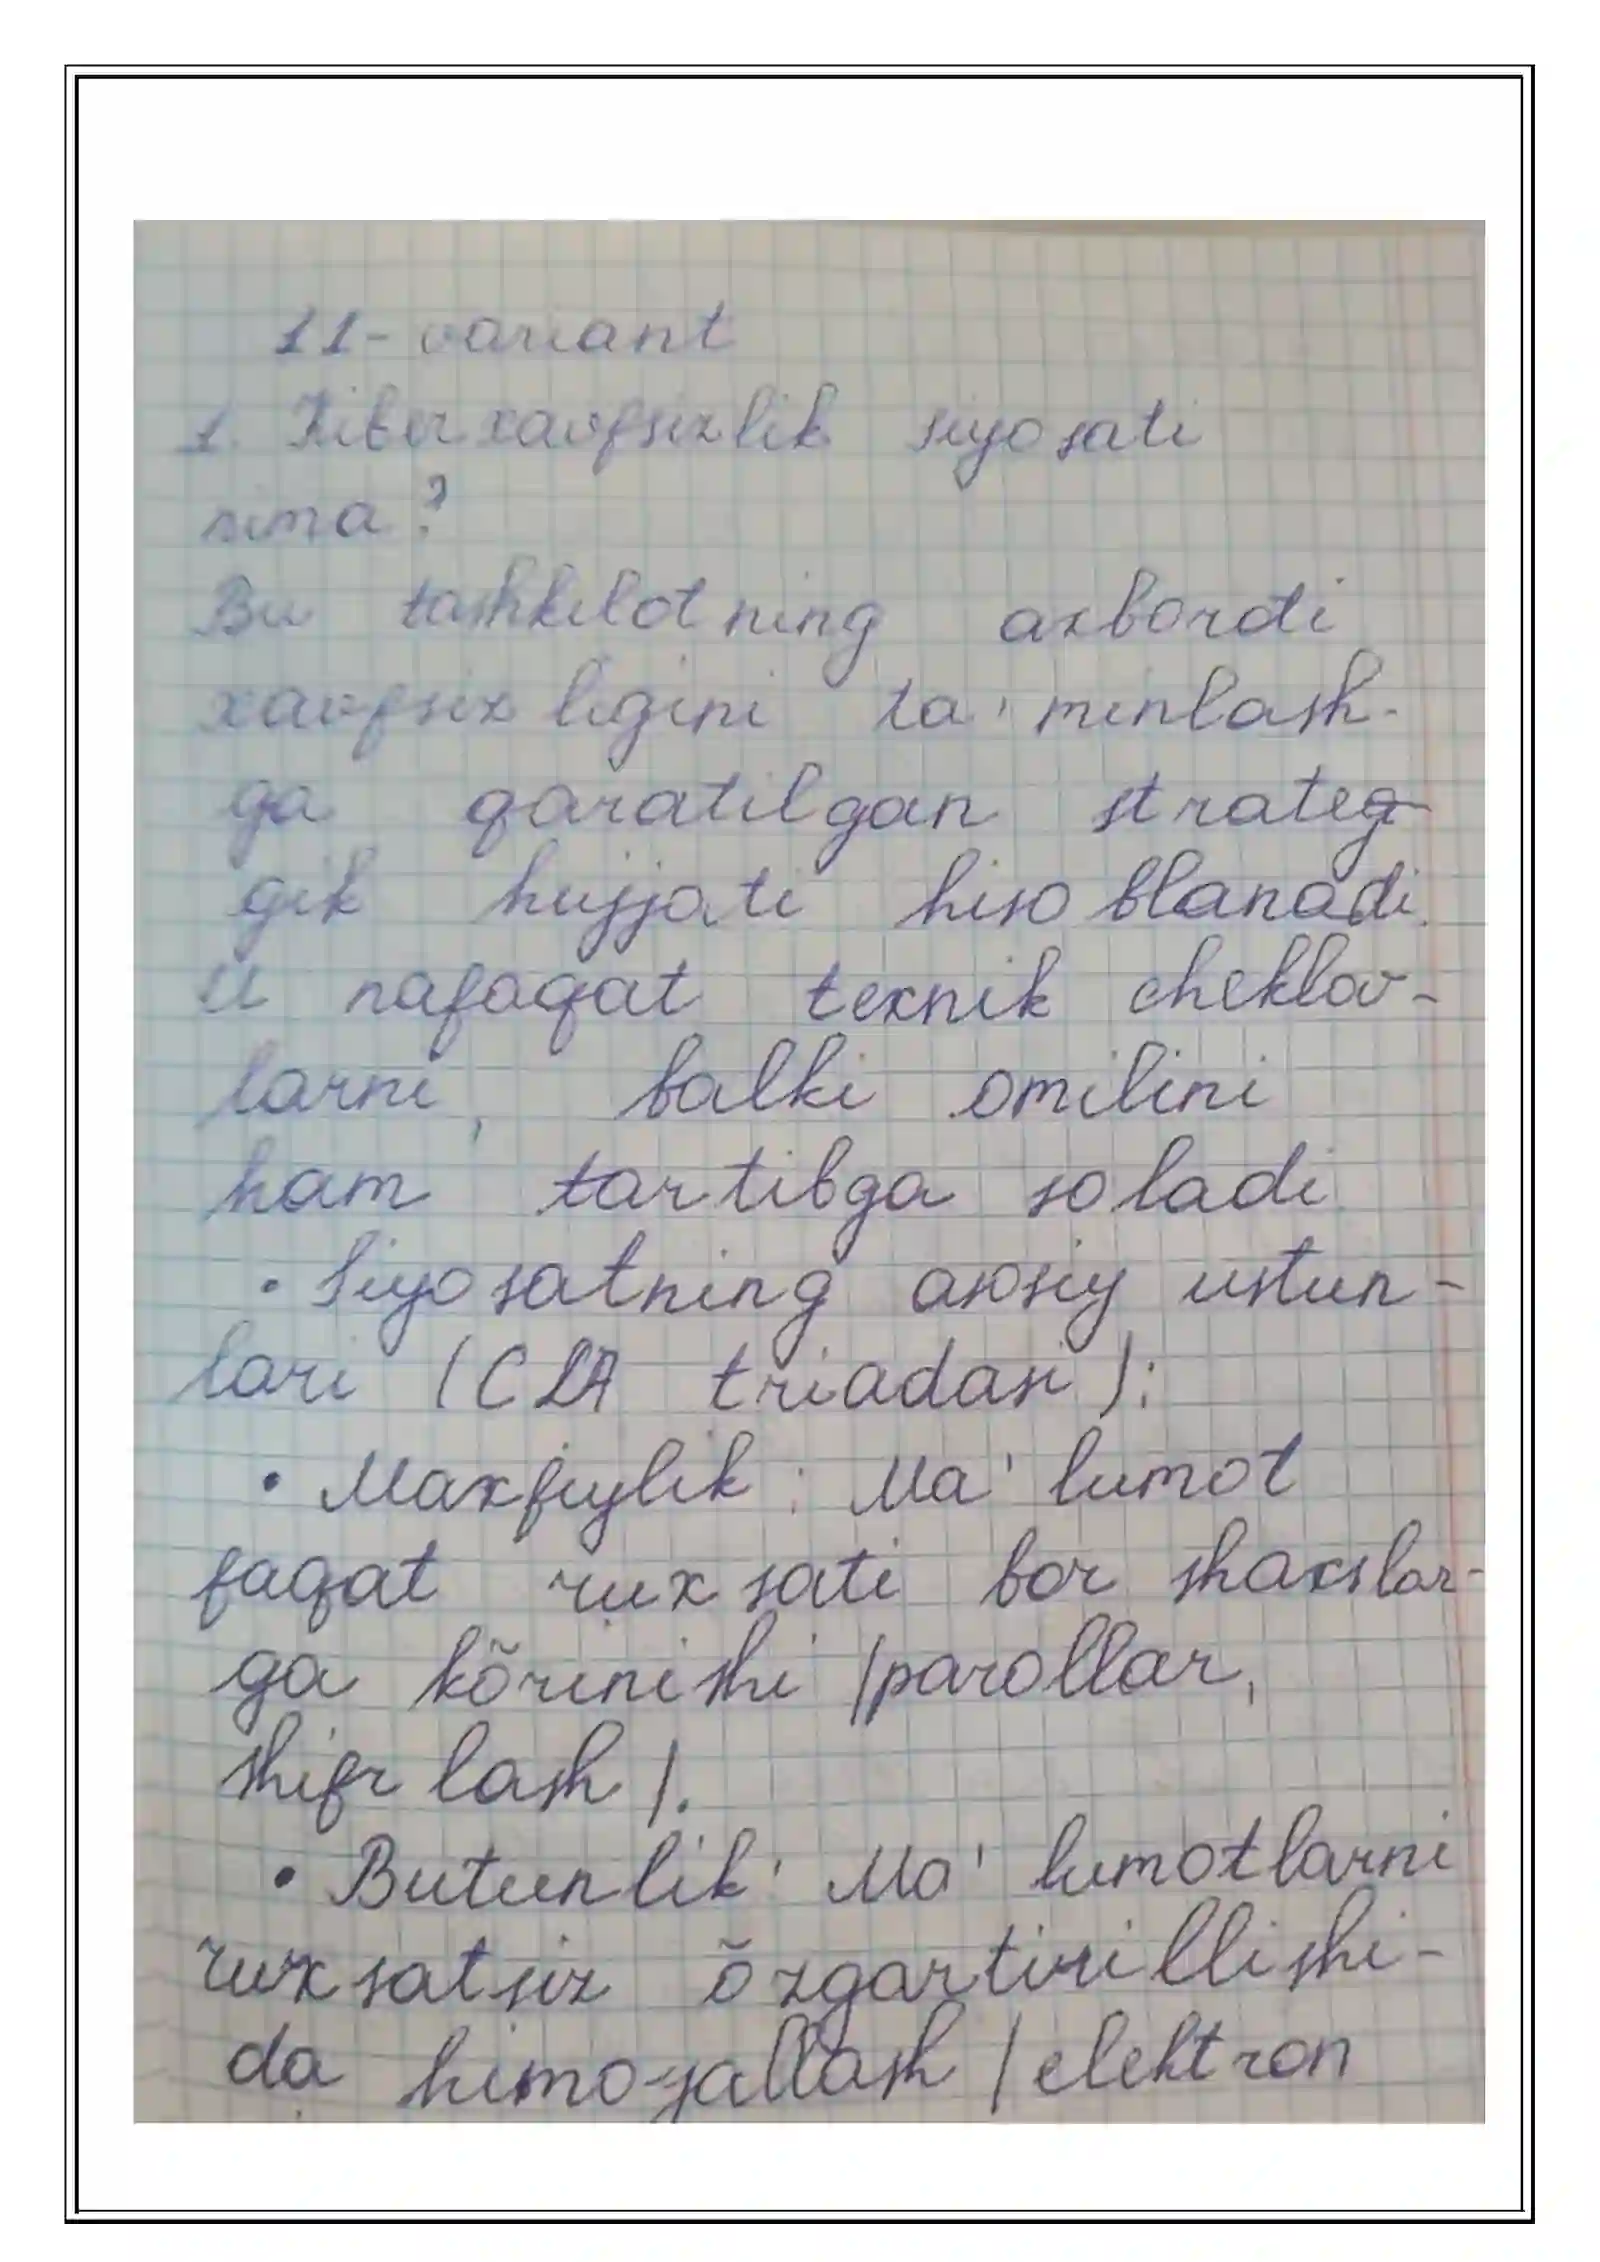 11- variant
1. Kiberxavfsizlik siyosati
nima?
Bu tashkilotning axbordti
xavfsizligini ta'minlash-
ga qaratilgan strateg-
gik hujjati hisoblanadi.
U nafaqat texnik cheklov-
larni, balki omilini
ham tartibga soladi
• Siyosatning asosiy ustun-
lari (CIA triadasi):
• Maxfiylik: Ma'lumot
faqat ruxsati bor shaxslar-
ga kõrinishi /parollar,
shifrlash/.
• Butunlik: Ma'lumotlarni
ruxsatsiz õzgartirillishi-
da himoyallash /elektron